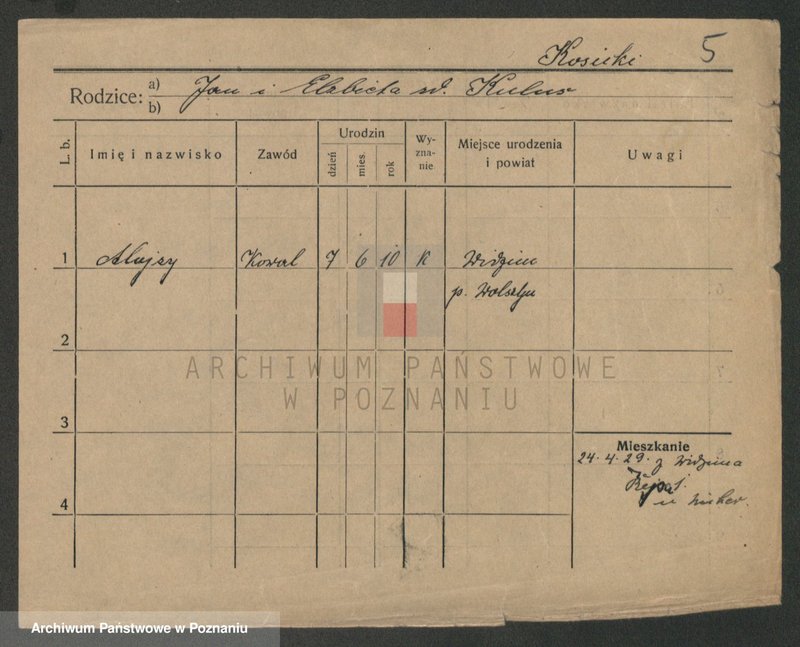 Kosicki 5
Rodzice: a) Jan i Elzbieta
b)
L. b. Imię i nazwisko Zawód Urodzin dzień mies. rok Wy-zna-nie Miejsce urodzenia i powiat Uwagi
1 Alojzy Kowal 7 6 10 K Widzim
p. Wolsztyn
2
ARCHIWUM PAŃSTWOWE
W POZNANIU
3
Mieszkanie
24.4.29. z Widzima
4
Archiwum Państwowe w Poznaniu